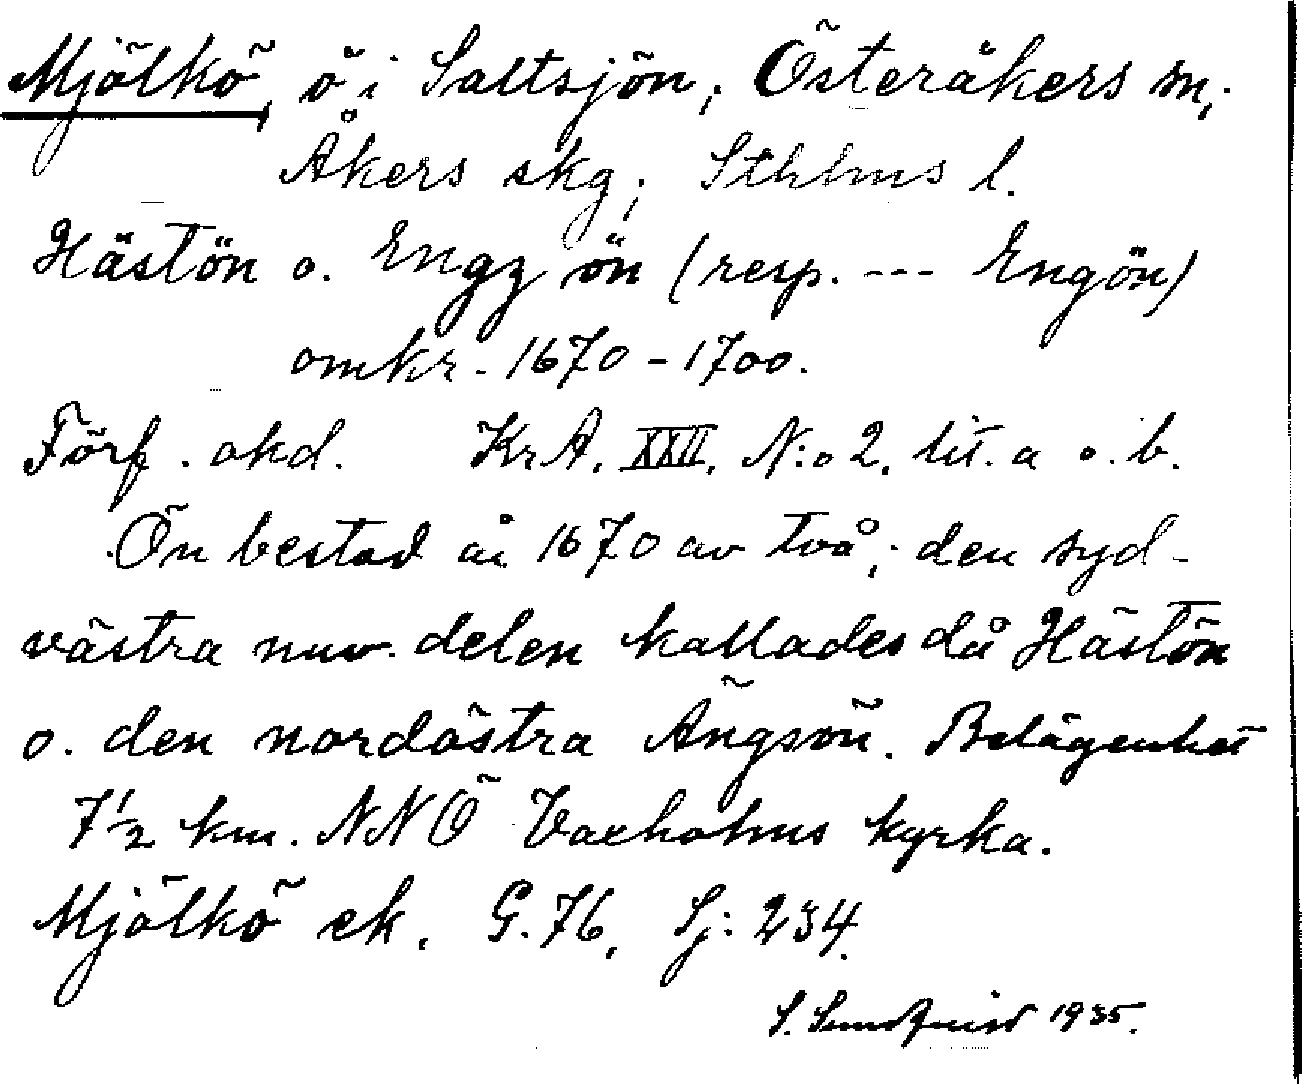 Mjölkö, ö i Saltsjön; Österåkers sn;
Åkers skg; Sthlms l.
Hästön o. Engz ön (resp. --- Engön)
omkr. 1670-1700.
Förf. okd. KrA. XXII. N:o 2. lit. a o. b.
Ön bestod år 1670 av två; den syd-
västra nuv. delen kallades då Hästön
o. den nordöstra Ängsön. Belägenhet
7 1/2 km. NNÖ Vaxholms kyrka.
Mjölkö ek. G. 76, Sj: 234.
S. Sundquist 1935.